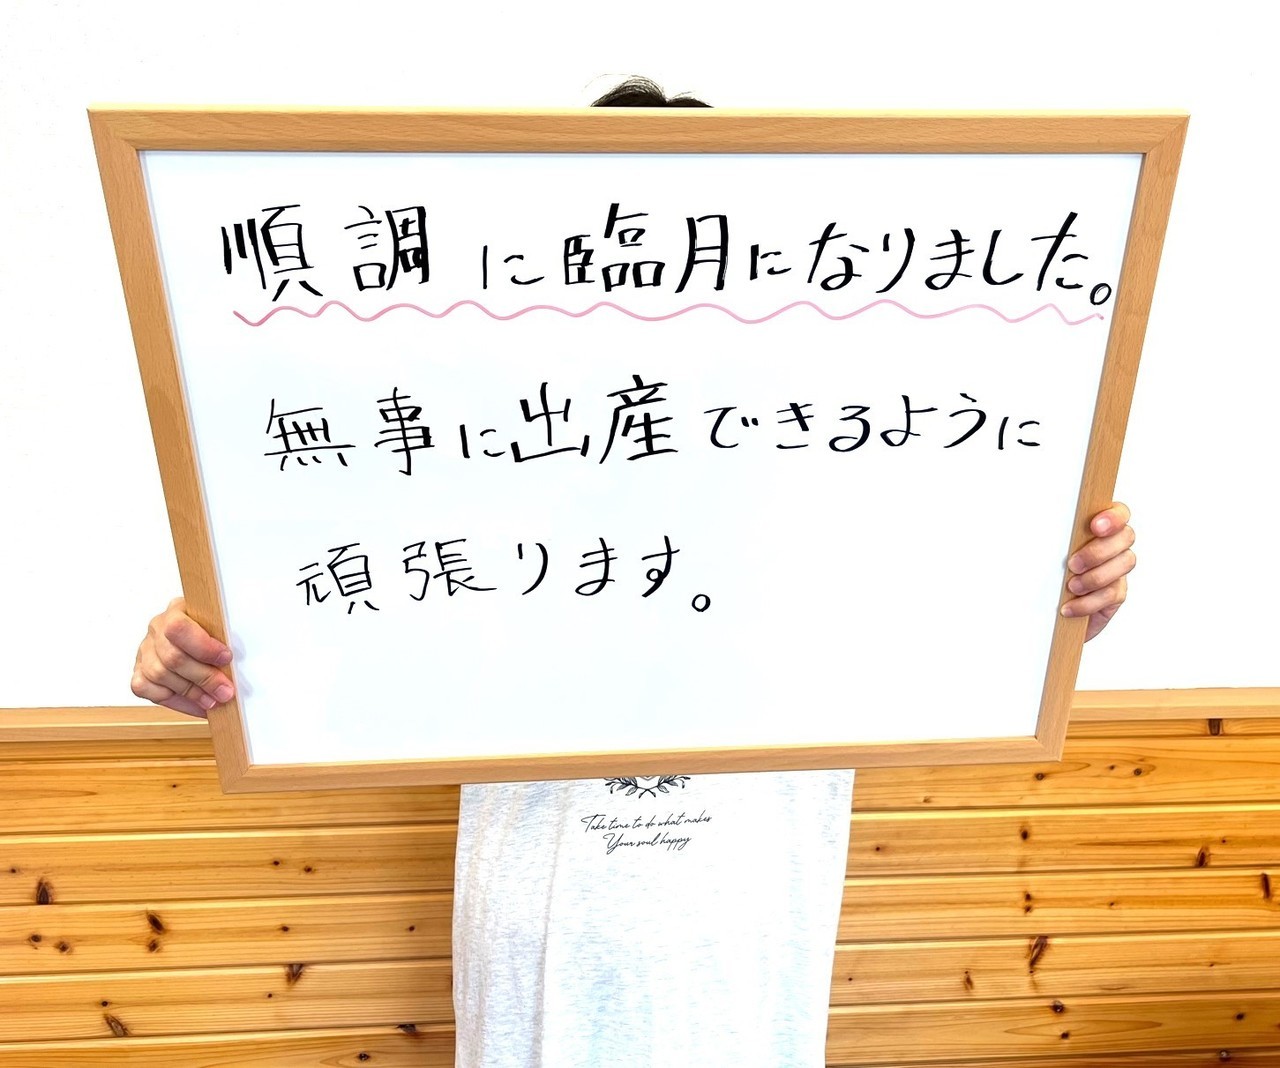 順調に臨月になりました。
無事に出産できるように
頑張ります。
Take time to do what makes
Your soul happy